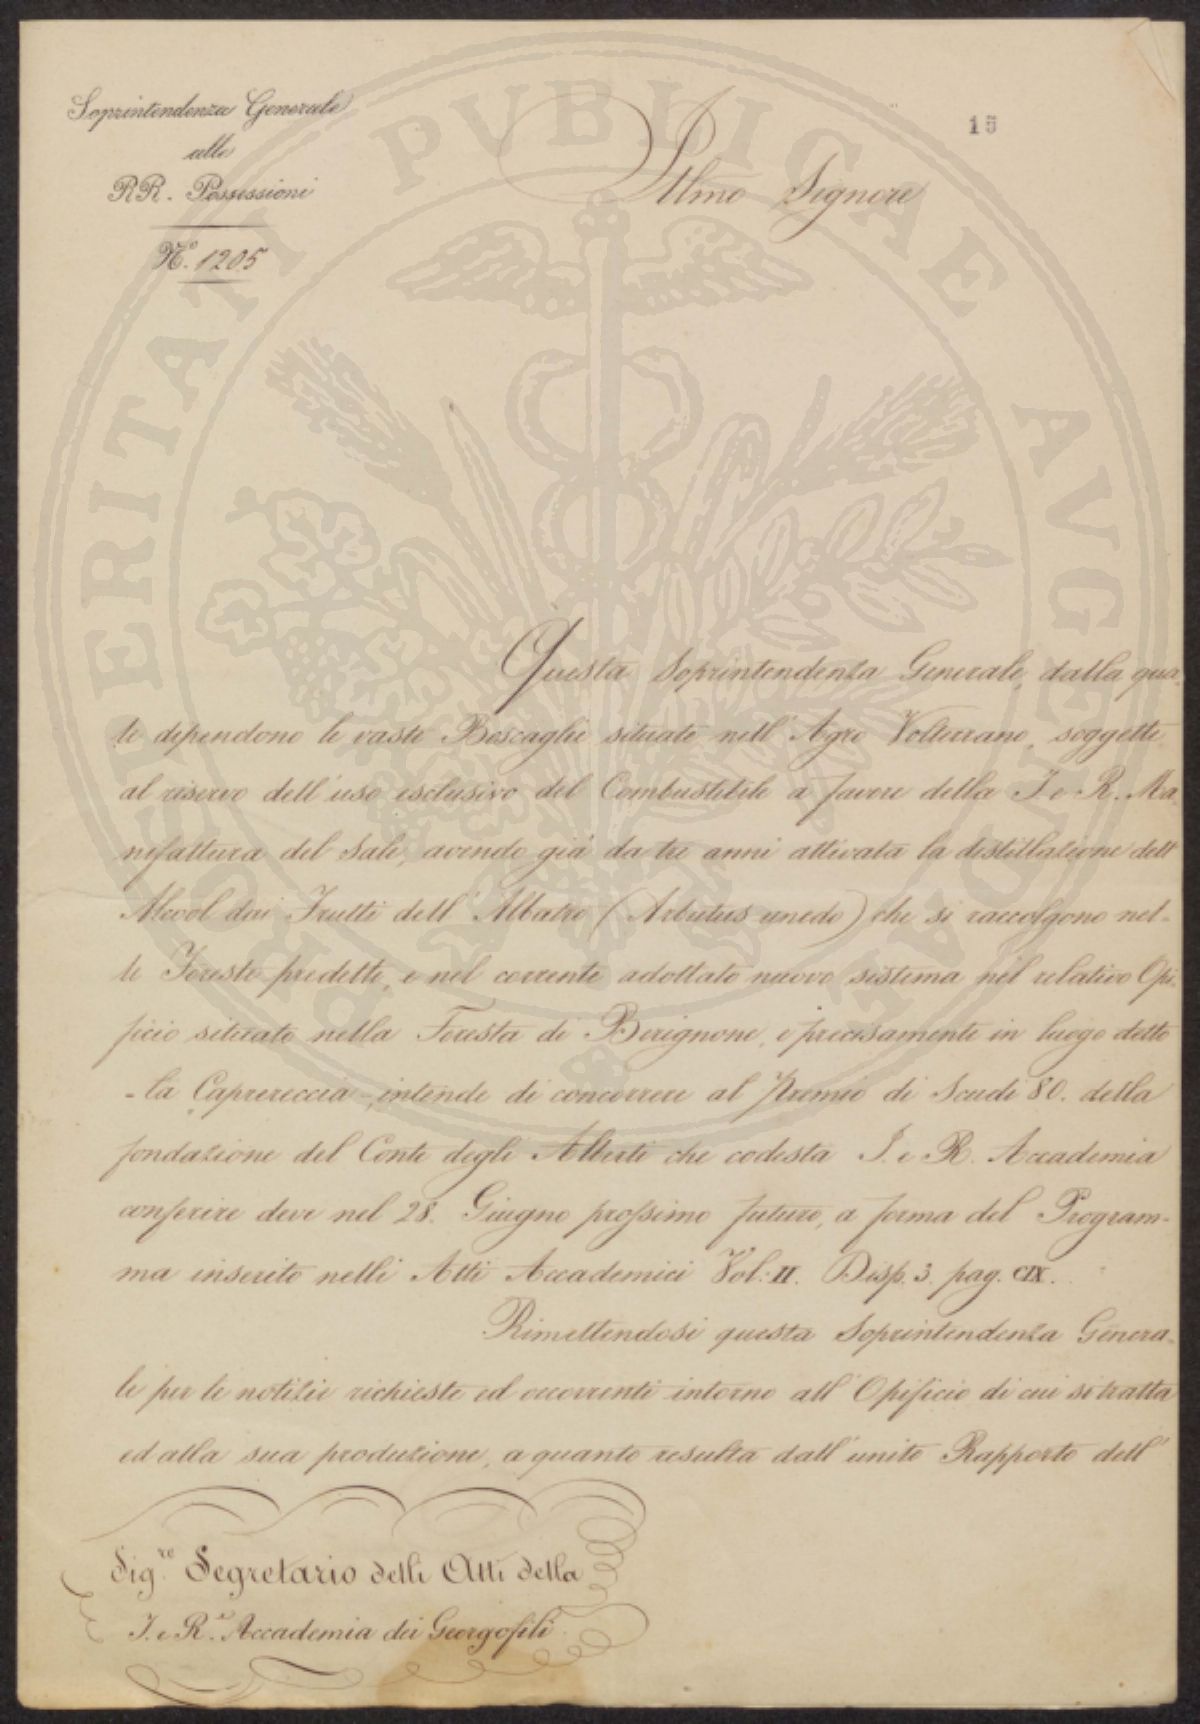 Soprintendenza Generale
alle
RR. Possessioni
N.° 1205
15
Illmo Signore
Questa Soprintendenza Generale, dalla qua-
le dipendono le vaste Boscaglie situate nell' Agro Volterrano, soggette
al riservo dell' uso esclusivo del Combustibile a favore della I. e R. Ma
nifattura del Sale, avendo già da tre anni attivata la distillazione dell'
Alcool dai Frutti dell' Albatro (Arbutus unedo) che si raccolgono nel-
le Foreste predette, e nel corrente adottato nuovo sistema nel relativo Opi-
ficio situato nella Foresta di Berignone, e precisamente in luogo detto
- la Caprereccia - intende di concorrere al Premio di Scudi 80. della
fondazione del Conte degli Alberti che codesta I. e R. Accademia
conferire deve nel 28. Giugno prossimo futuro, a forma del Program-
ma inserito nelli Atti Accademici Vol: II. Disp. 3. pag. CIX.
Rimettendosi questa Soprintendenza Genera-
le per le notizie richieste ed occorrenti intorno all' Opificio di cui si tratta
ed alla sua produzione, a quanto resulta dall' unito Rapporto dell'
Sig.re Segretario delli Atti della
I. e R.e Accademia dei Georgofili
PROSPERITATI PVBLICAE AVGENDAE